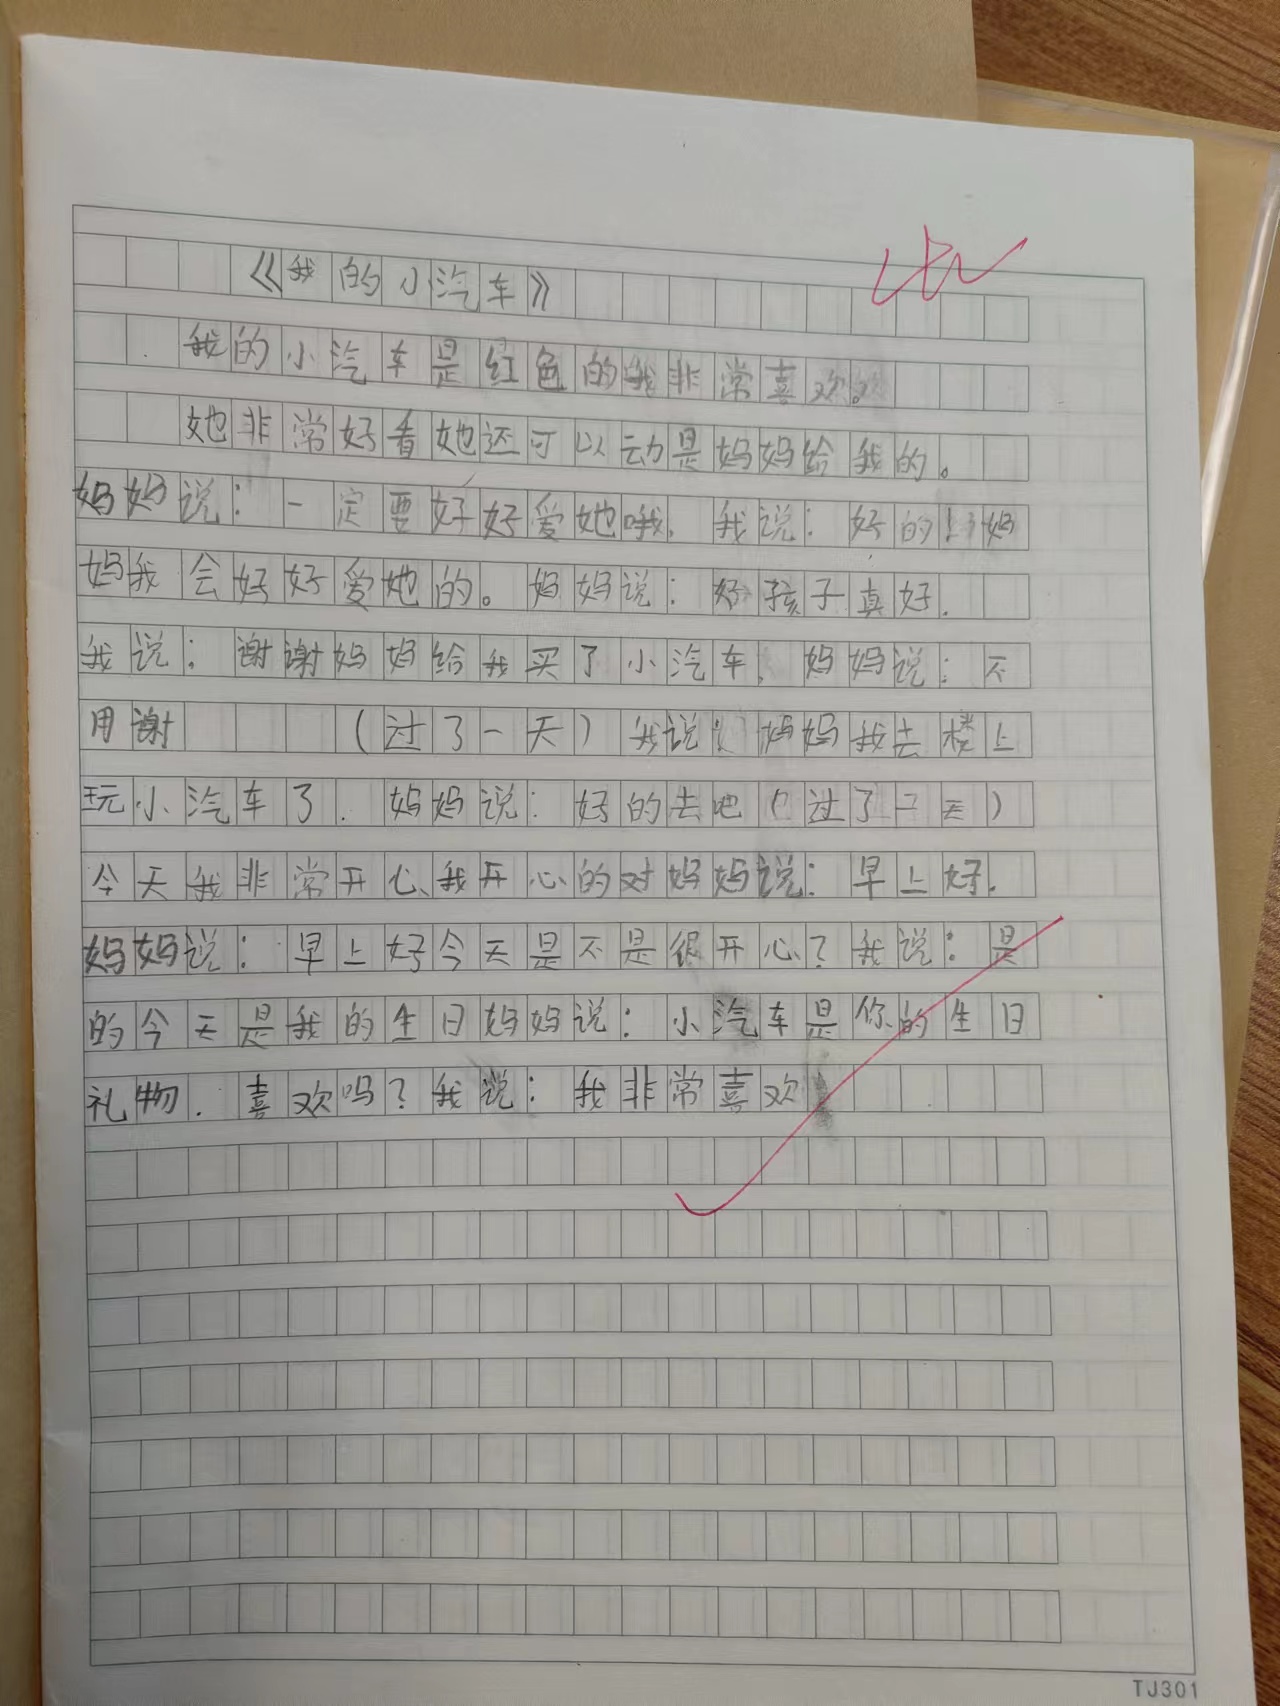 《我的小汽车》
我的小汽车是红色的我非常喜欢。
她非常好看她还可以动是妈妈给我的。
妈妈说：一定要好好爱她哦. 我说：好的！妈
妈我会好好爱她的。妈妈说：好孩子真好.
我说：谢谢妈妈给我买了小汽车. 妈妈说：不
用谢 （过了一天）我说：妈妈我去楼上
玩小汽车了. 妈妈说：好的去吧（过了二天）
今天我非常开心、我开心的对妈妈说：早上好.
妈妈说：早上好今天是不是很开心？我说：是
的今天是我的生日妈妈说：小汽车是你的生日
礼物. 喜欢吗？我说：我非常喜欢
TJ301